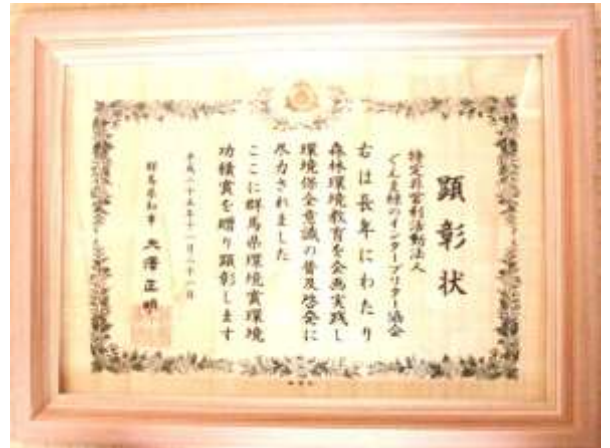 顕彰状
特定非営利活動法人
ぐんま緑のインタープリター協会
右は長年にわたり
森林環境教育を企画実践し
環境保全意識の普及啓発に
尽力されました
ここに群馬県環境賞環境
功績賞を贈り顕彰します
平成二十五年十一月二十一日
群馬県知事 大澤正明